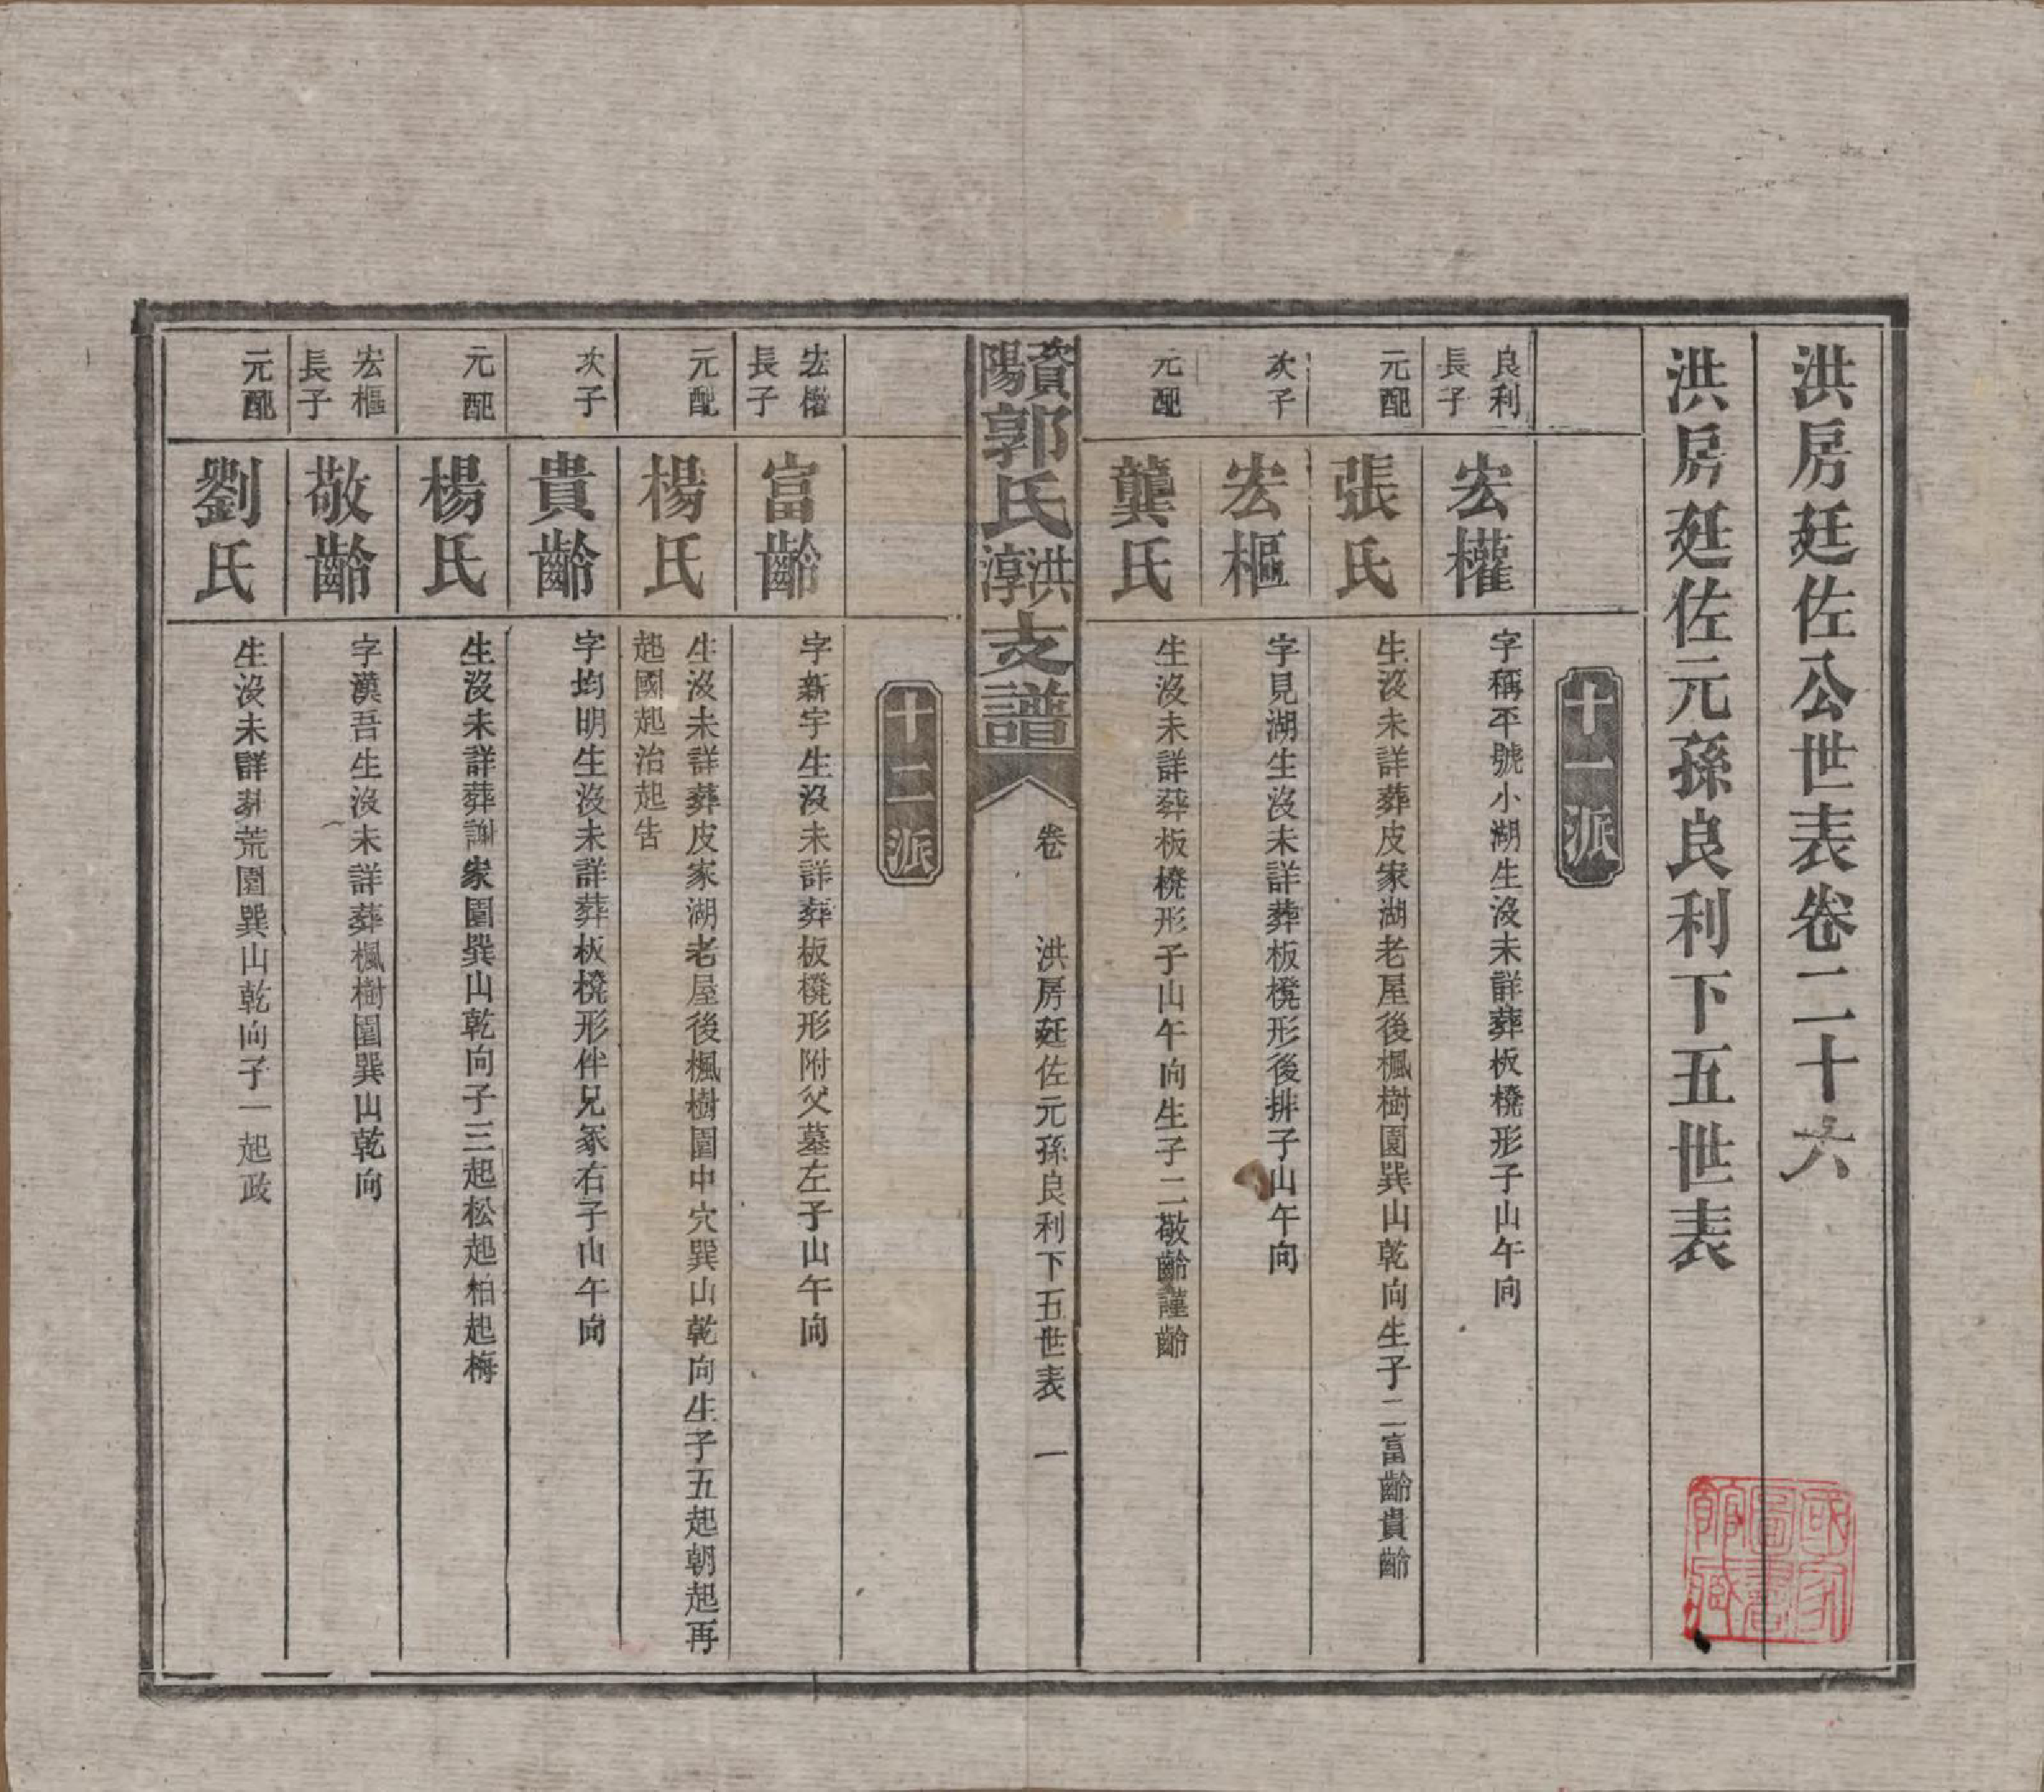 洪房廷佐公世表卷二十六
洪房廷佐元孫良利下五世表
十一派
良利
長子
宏權
字稱平號小湖生沒未詳葬板櫈形子山午向
元配
張氏
生沒未詳葬皮家湖老屋後楓樹園巽山乾向生子二富齡貴齡
次子
宏樞
字見湖生沒未詳葬板櫈形後排子山午向
元配
龔氏
生沒未詳葬板櫈形子山午向生子二敬齡謹齡
資陽郭氏洪淳支譜
卷
洪房廷佐元孫良利下五世表
一
十二派
宏權
長子
富齡
字新宇生沒未詳葬板櫈形附父墓左子山午向
元配
楊氏
生沒未詳葬皮家湖老屋後楓樹園中穴巽山乾向生子五起朝起再
起國起治起告
次子
貴齡
字均明生沒未詳葬板櫈形伴兄冢右子山午向
元配
楊氏
生沒未詳葬謝家園巽山乾向子三起松起柏起梅
宏樞
長子
敬齡
字漢吾生沒未詳葬楓樹園巽山乾向
元配
劉氏
生沒未詳葬荒園巽山乾向子一起政
國家
圖書
館藏